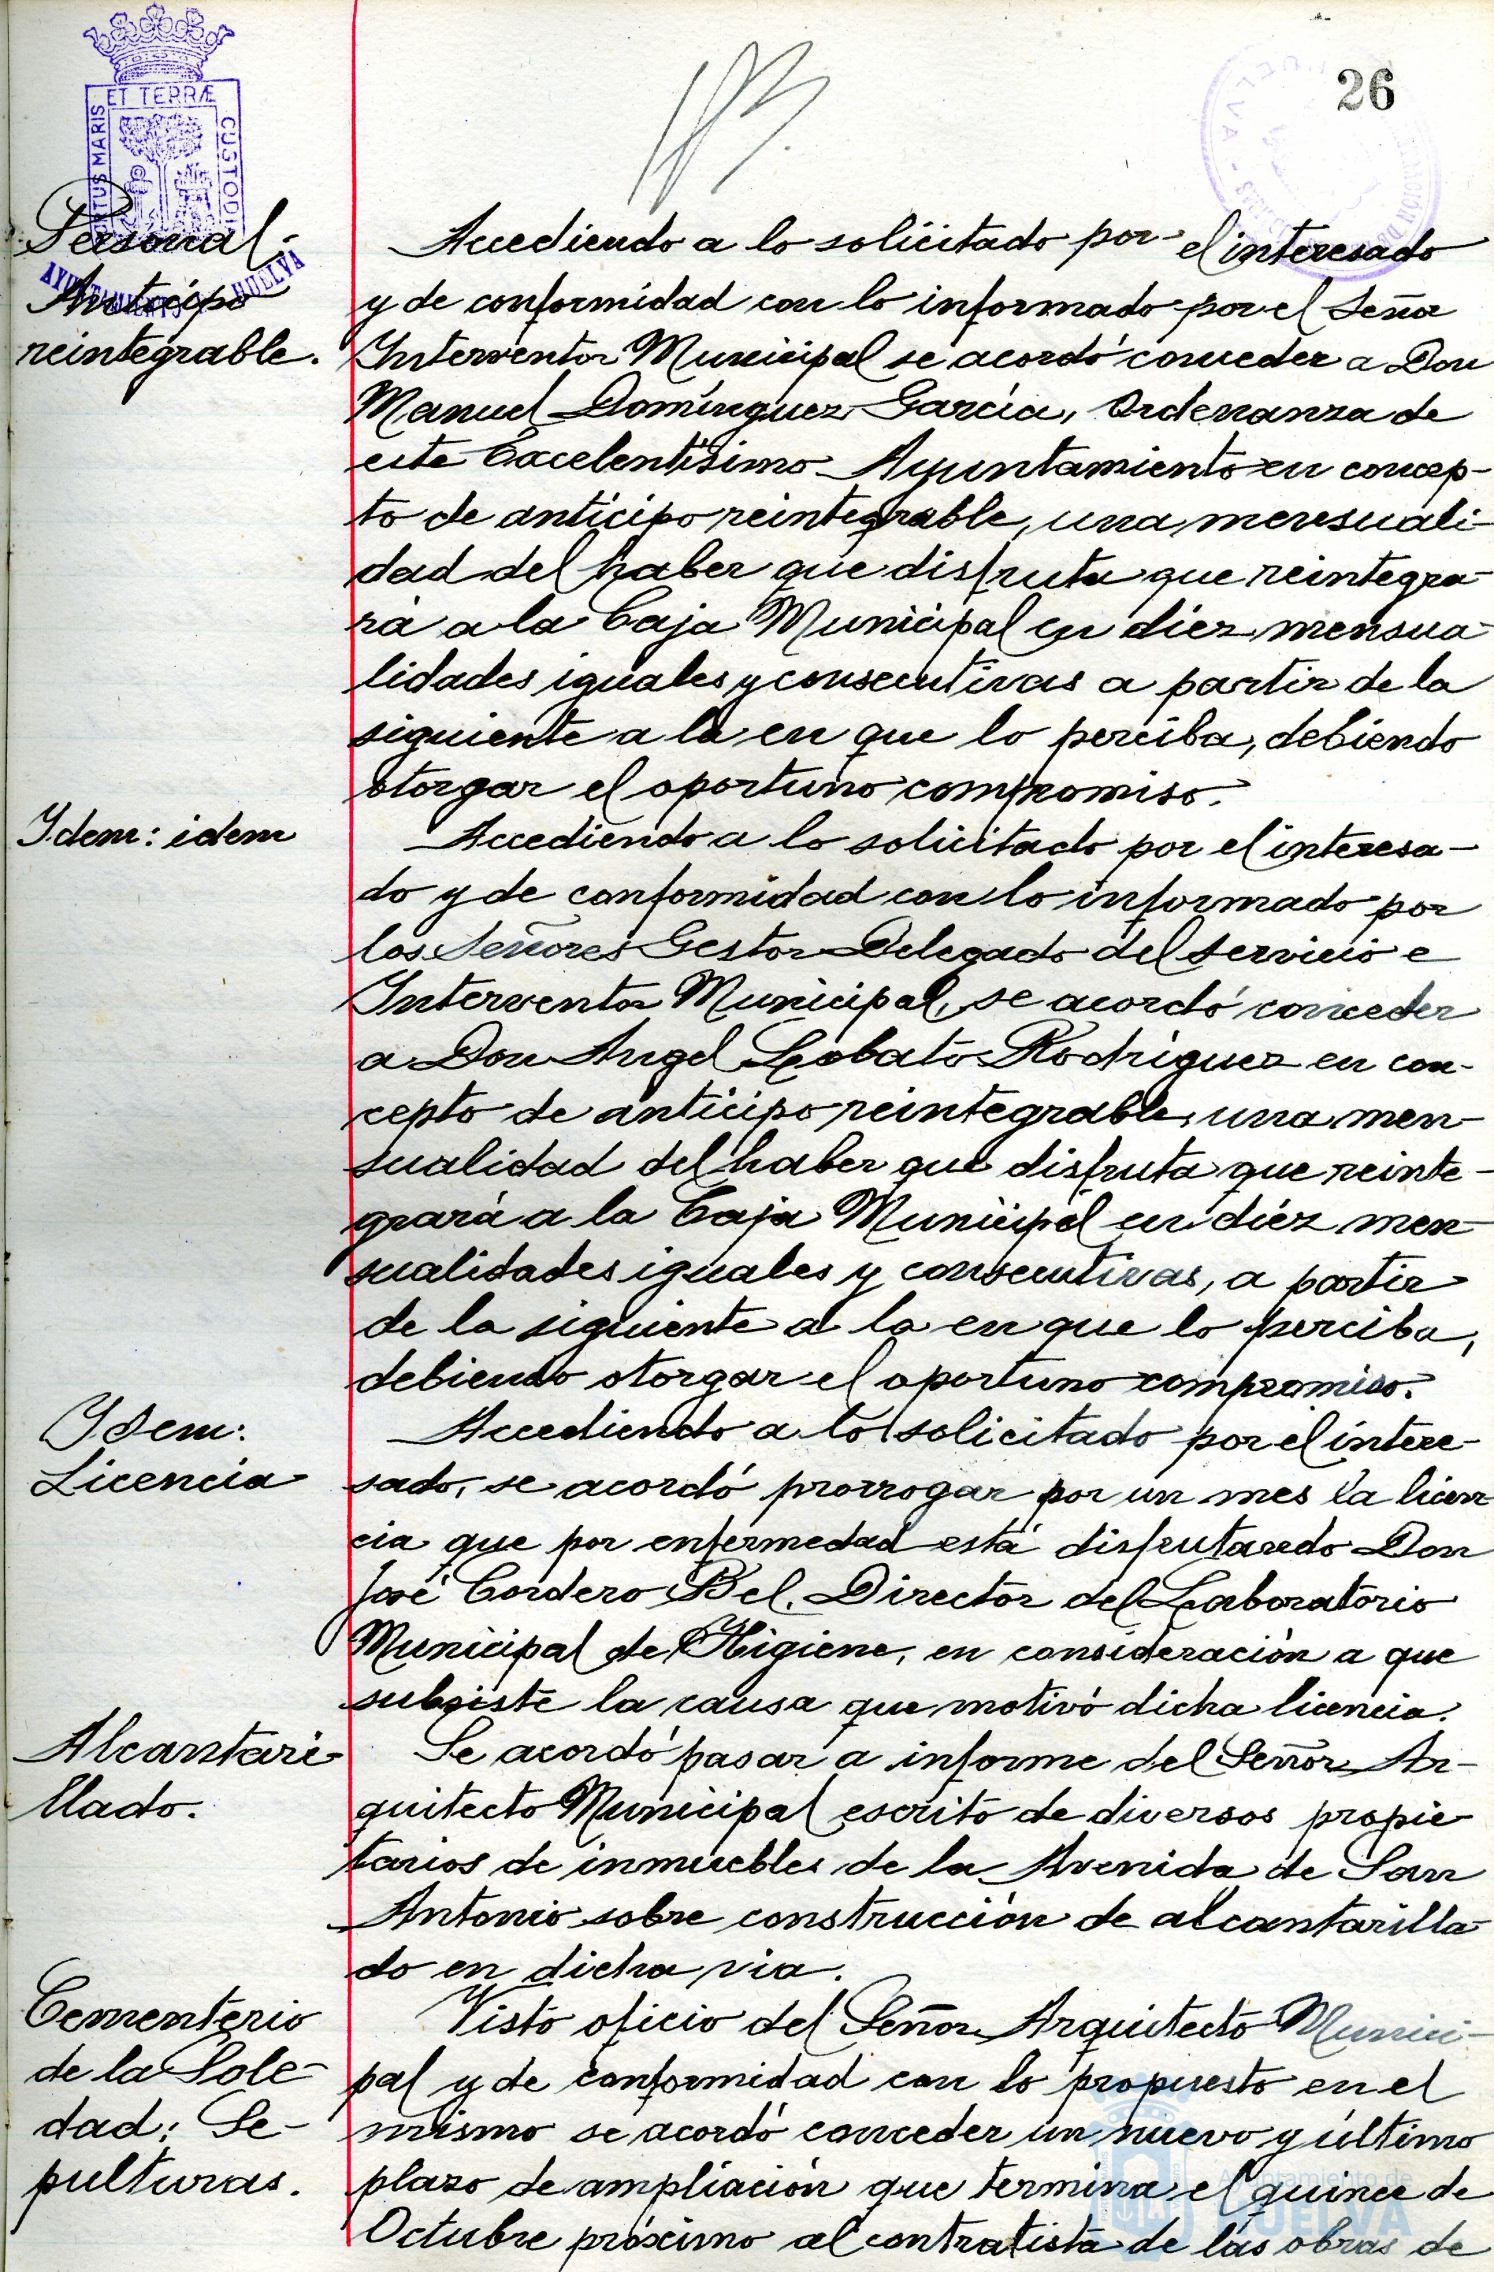 26
PORTUS MARIS ET TERRÆ CUSTODIA
AYUNTAMIENTO HUELVA
Personal:
Anticipo
reintegrable.
Accediendo a lo solicitado por el interesado
y de conformidad con lo informado por el Señor
Interventor Municipal se acordó conceder a Don
Manuel Domínguez García, Ordenanza de
este Excelentísimo Ayuntamiento en concep-
to de anticipo reintegrable, una mensuali-
dad del haber que disfruta que reintegra-
rá a la Caja Municipal en diez mensua-
lidades iguales y consecutivas a partir de la
siguiente a la en que lo perciba, debiendo
otorgar el oportuno compromiso.
Idem: idem
Accediendo a lo solicitado por el interesa-
do y de conformidad con lo informado por
los Señores Gestor Delegado del servicio e
Interventor Municipal, se acordó conceder
a Don Angel Lobato Rodríguez en con-
cepto de anticipo reintegrable, una men-
sualidad del haber que disfruta que reinte-
grará a la Caja Municipal en diez men-
sualidades iguales y consecutivas, a partir
de la siguiente a la en que lo perciba,
debiendo otorgar el oportuno compromiso.
Idem:
Licencia
Accediendo a lo solicitado por el intere-
sado, se acordó prorrogar por un mes la licen-
cia que por enfermedad está disfrutando Don
José Cordero Bel, Director del Laboratorio
Municipal de Higiene, en consideración a que
subsiste la causa que motivó dicha licencia.
Alcantari-
llado.
Se acordó pasar a informe del Señor Ar-
quitecto Municipal escrito de diversos propie-
tarios de inmuebles de la Avenida de San
Antonio sobre construcción de alcantarilla-
do en dicha via.
Cementerio
de la Sole-
dad: Se-
pulturas.
Visto oficio del Señor Arquitecto Munici-
pal y de conformidad con lo propuesto en el
mismo se acordó conceder un nuevo y último
plazo de ampliación que termina el quince de
Octubre próximo al contratista de las obras de
Ayuntamiento de
HUELVA